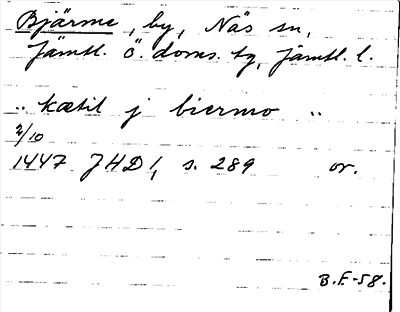 Bjärme, by, Näs sn,
Jämtl. Ö. doms. tg, Jämtl. l.
.. kætil j biermo ..
2/10
1447 JHD 1, s. 289 or.
B.F.-58.